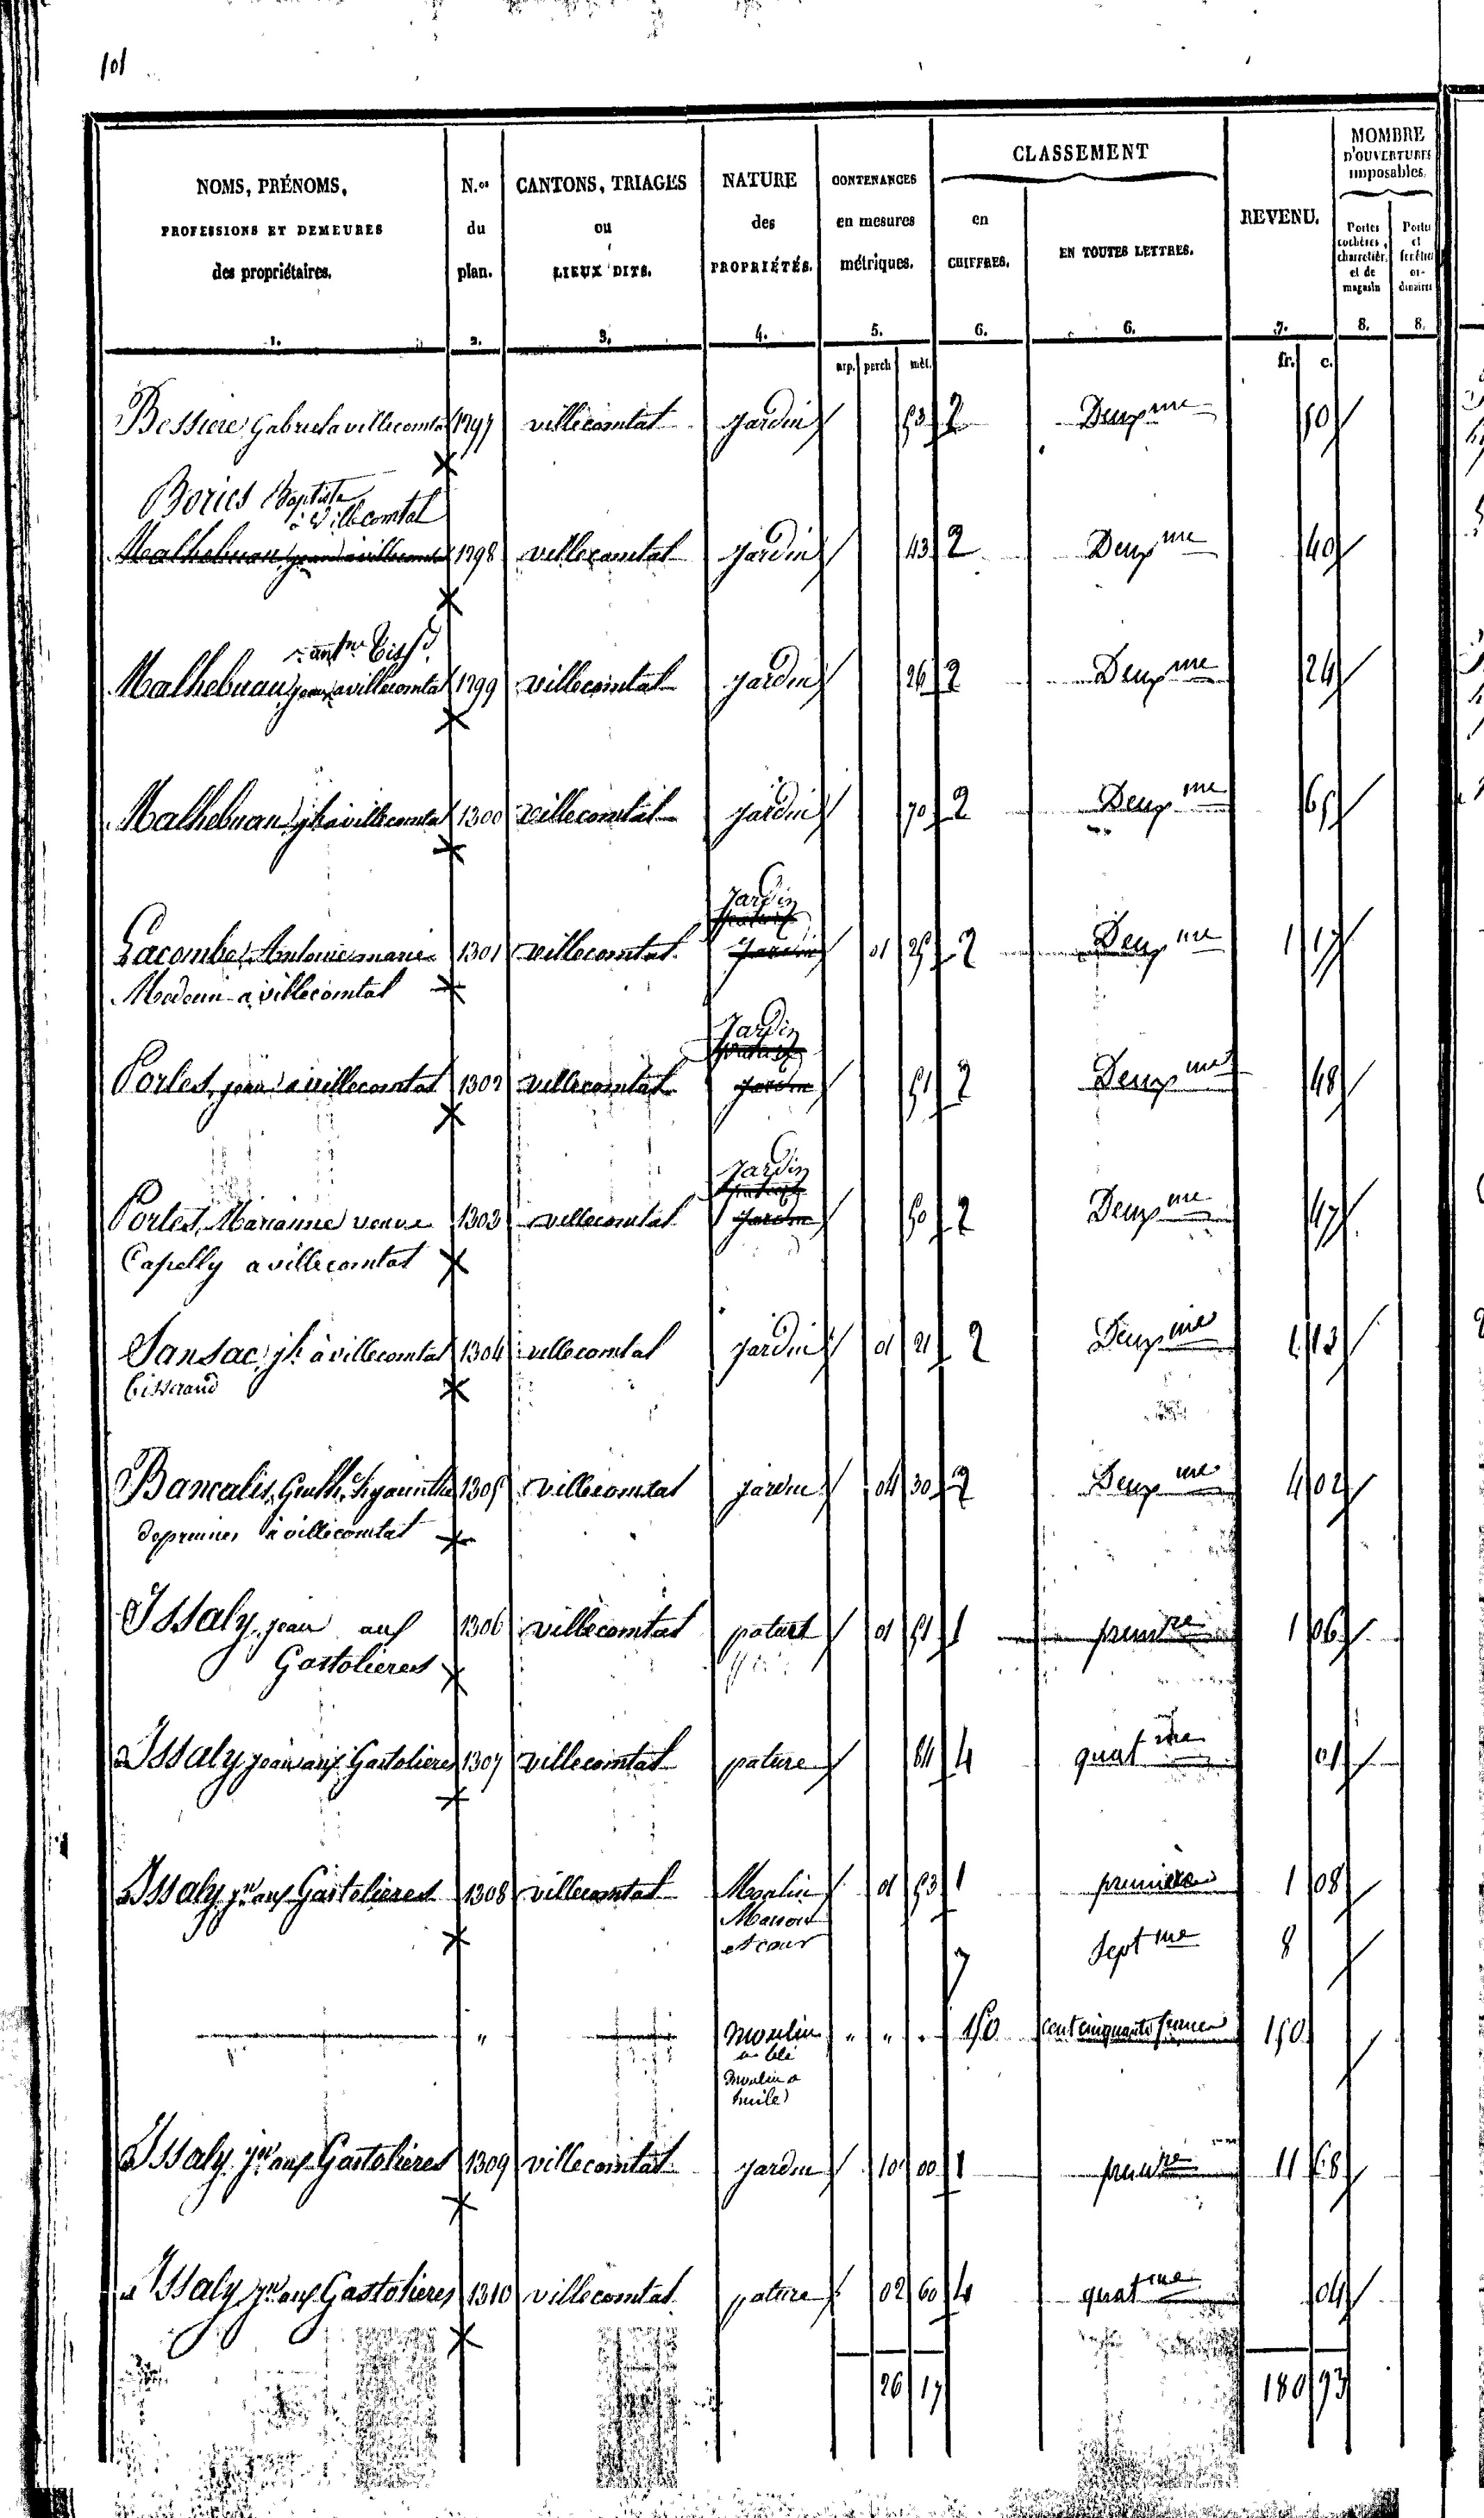 101
NOMS, PRÉNOMS,
PROFESSIONS ET DEMEURES
des propriétaires.
1.
N.os
du
plan.
2.
CANTONS, TRIAGES
ou
LIEUX DITS.
3.
NATURE
des
PROPRIÉTÉS.
4.
CONTENANCES
en mesures
métriques.
5.
arp. perch mèt.
CLASSEMENT
en
CHIFFRES.
6.
EN TOUTES LETTRES.
6.
REVENU.
7.
fr. c.
NOMBRE
D'OUVERTURES
imposables.
Portes
cochères,
charretièr.
et de
magasin
8.
Portes
et
fenêtres
or-
dinaires
8.
Bessiere Gabriel a villecomtal 1297 villecomtal jardin 53 2 Deuxme 50
Bories Baptiste
à Villecomtal
Malhebuau jean a villecomtal 1298 villecomtal jardin 43 2 Deuxme 40
Malhebuau a villecomtal 1299 villecomtal jardin 26 2 Deuxme 24
Malhebuau jh a villecomtal 1300 villecomtal jardin 70 2 Deuxme 65
Jardin
Lacombe Antoine marie 1301 villecomtal jardin 01 25 2 Deuxme 1 17
Medecin a villecomtal
Jardin
Portes jean a villecomtal 1302 villecomtal jardin 51 2 Deuxme 48
Jardin
Portes Marianne veuve 1303 villecomtal jardin 50 2 Deuxme 47
Capelly a villecomtal
Sansac jh à villecomtal 1304 villecomtal jardin 01 21 2 Deuxme 1 13
tisserand
Bancalis 1305 villecomtal jardin 04 30 2 Deuxme 4 02
à villecomtal
Issaly jean aux 1306 villecomtal pature 01 51 1 premre 1 06
Gastolieres
Issaly jean aux Gastolieres 1307 villecomtal pature 84 4 quatme 01
Issaly jn aux Gastolieres 1308 villecomtal Moulin 01 53 1 premiere 1 08
Maison
et cour
7 Septme 8
" moulin " " . 150 cent cinquante francs 150
a blé
moulin a
huile
Issaly jn aux Gastolieres 1309 villecomtal jardin 10 00 1 premre 11 68
Issaly jn aux Gastolieres 1310 villecomtal pature 02 60 4 quatme 04
26 17 180 93